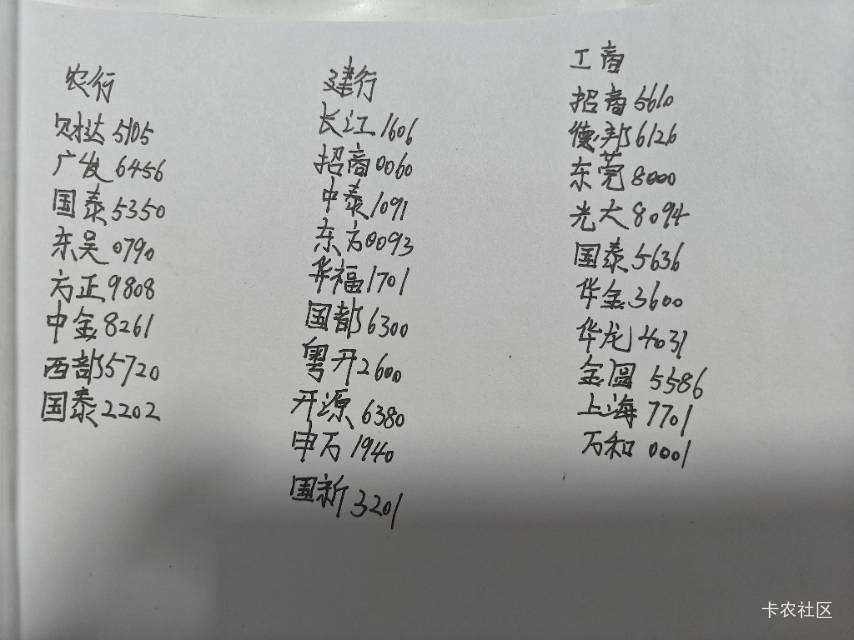 农行
财达 5105
广发 6456
国泰 5350
东吴 0790
方正 9808
中金 8261
西部 5720
国泰 2202
建行
长江 1606
招商 0060
中泰 1091
东方 0093
华福 1701
国都 6300
粤开 2600
开源 6380
申万 1940
国新 3201
工商
招商 5610
德邦 6126
东莞 8000
光大 8094
国泰 5636
华金 3600
华龙 4031
金圆 5586
上海 7701
万和 0001
卡农社区